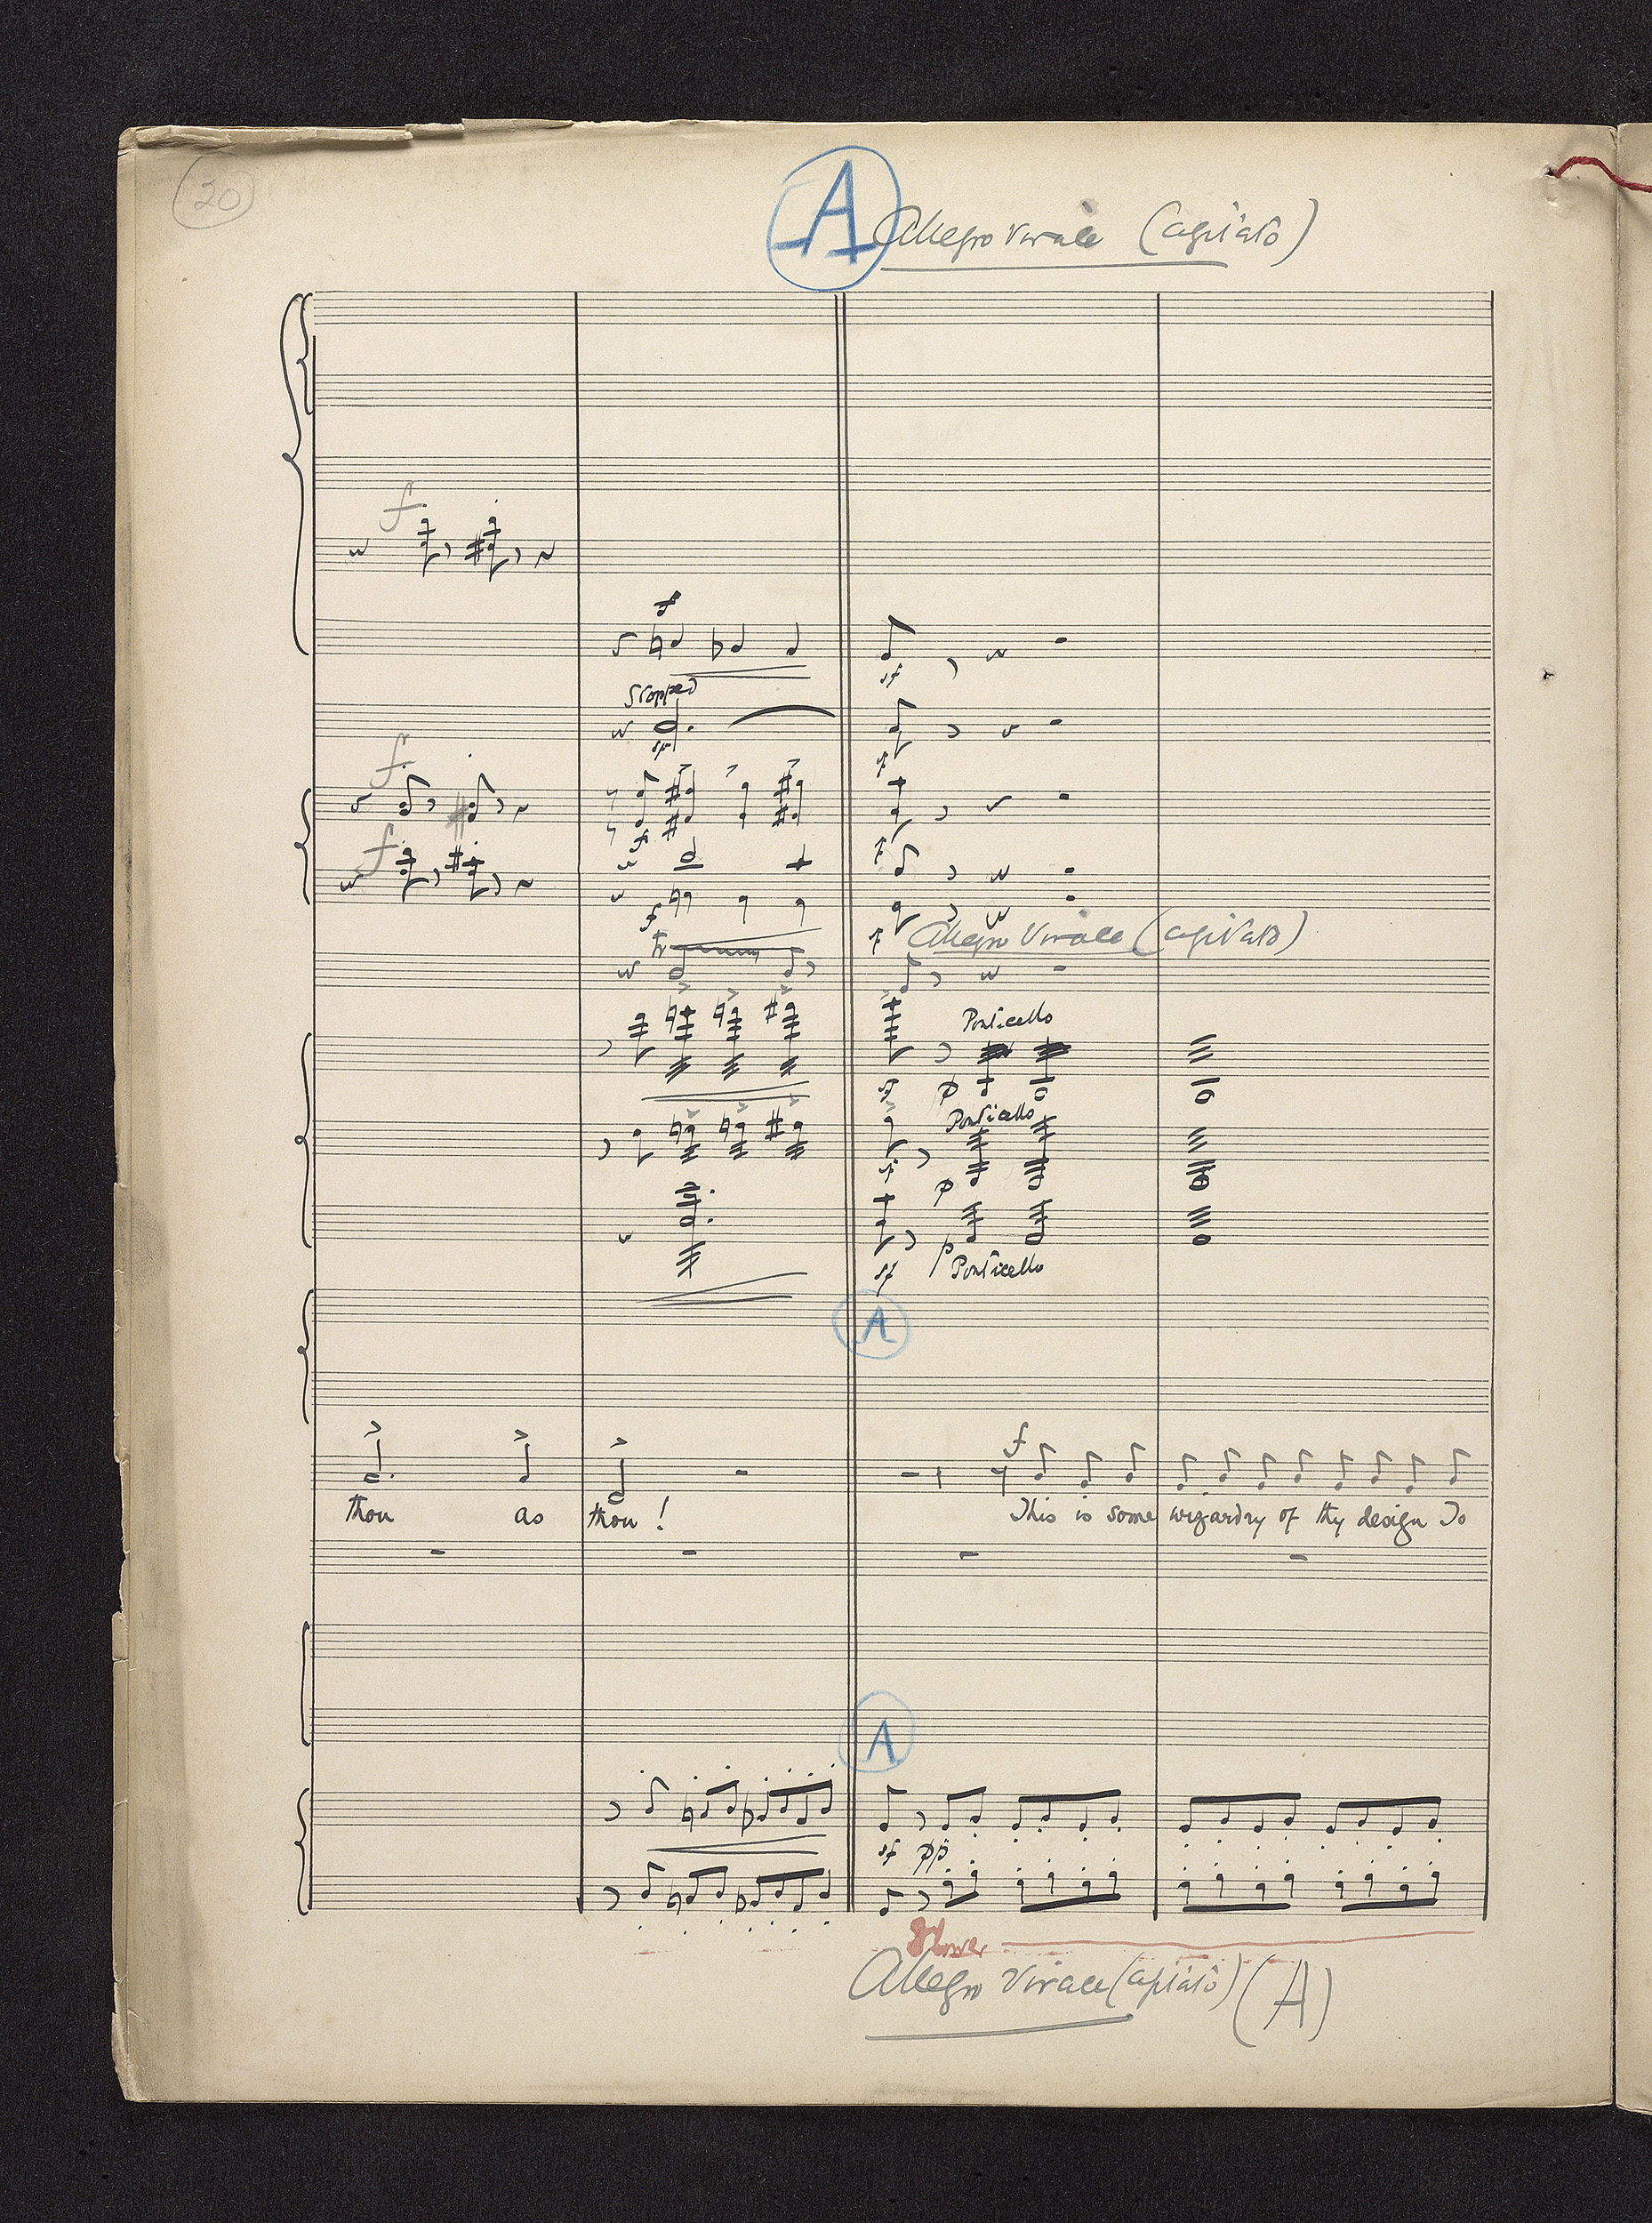 20
A Allegro Vivace (agitato)
f
f
Stopped
sf
sf
sf
f
f
f
sf
sf
f
sf
Allegro Vivace (agitato)
tr
Ponticello
sf p
Ponticello
sf p
p
sf Ponticello
A
f
thou as thou! This is some wizardry of thy design To
A
sf pp
Slower
Allegro Vivace (agitato) (A)